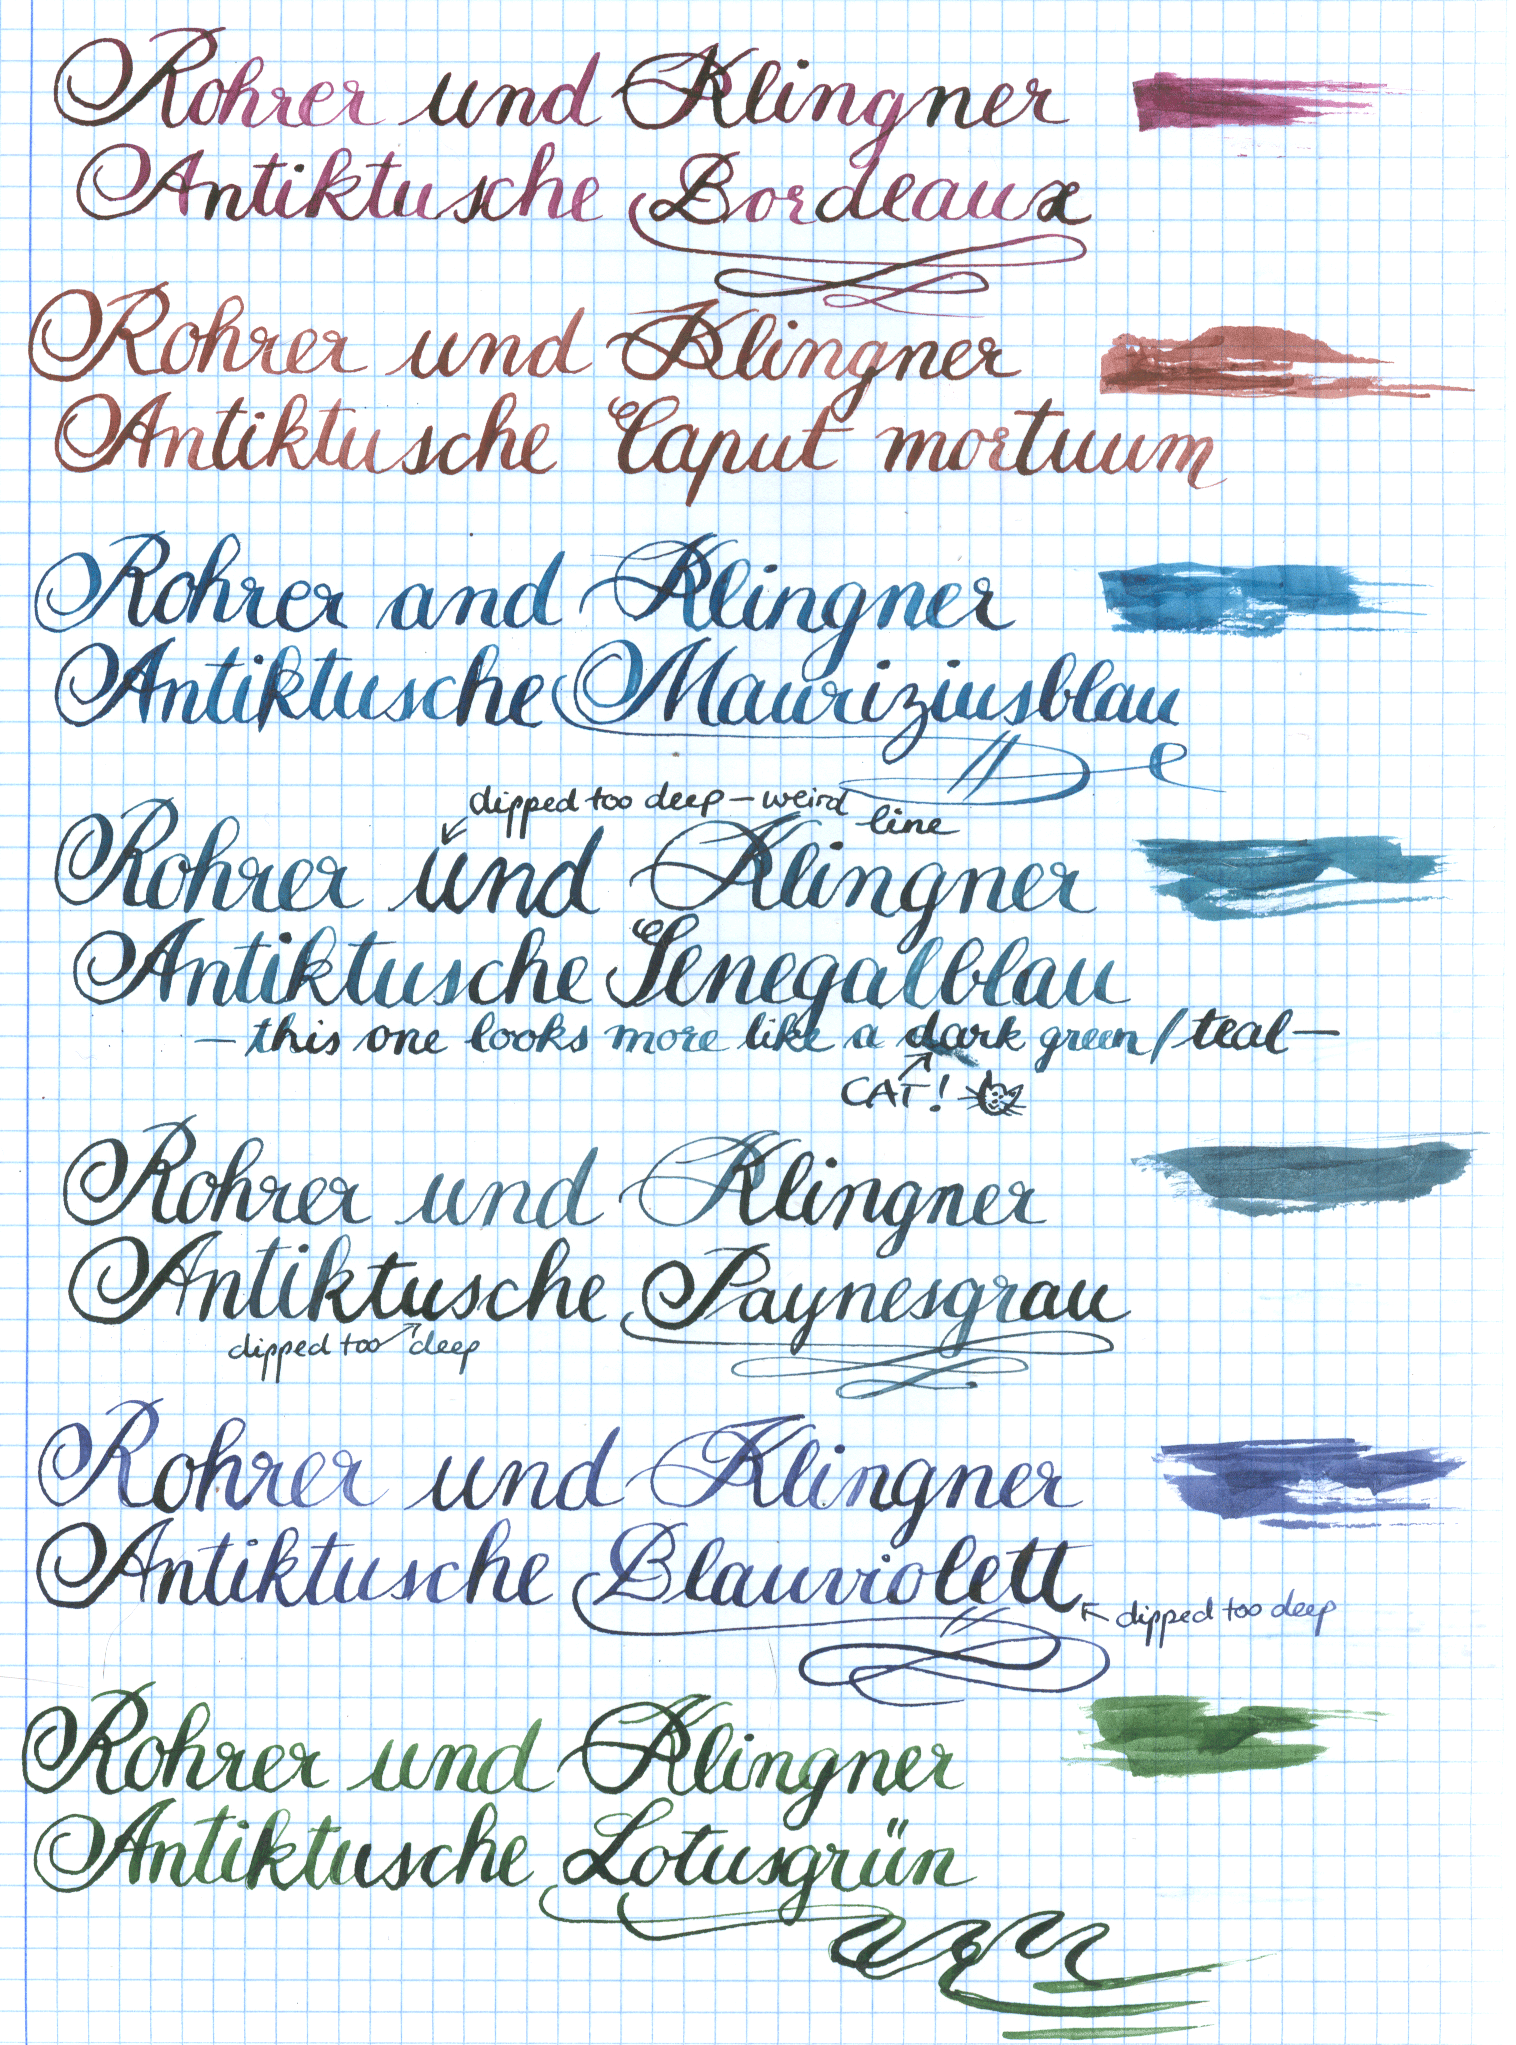 Rohrer und Klingner
Antiktusche Bordeaux
Rohrer und Klingner
Antiktusche Caput mortuum
Rohrer and Klingner
Antiktusche Mauriziusblau
dipped too deep – weird line
Rohrer und Klingner
Antiktusche Senegalblau
– this one looks more like a dark green / teal –
CAT!
Rohrer und Klingner
Antiktusche Paynesgrau
dipped too deep
Rohrer und Klingner
Antiktusche Blauviolett
dipped too deep
Rohrer und Klingner
Antiktusche Lotusgrün